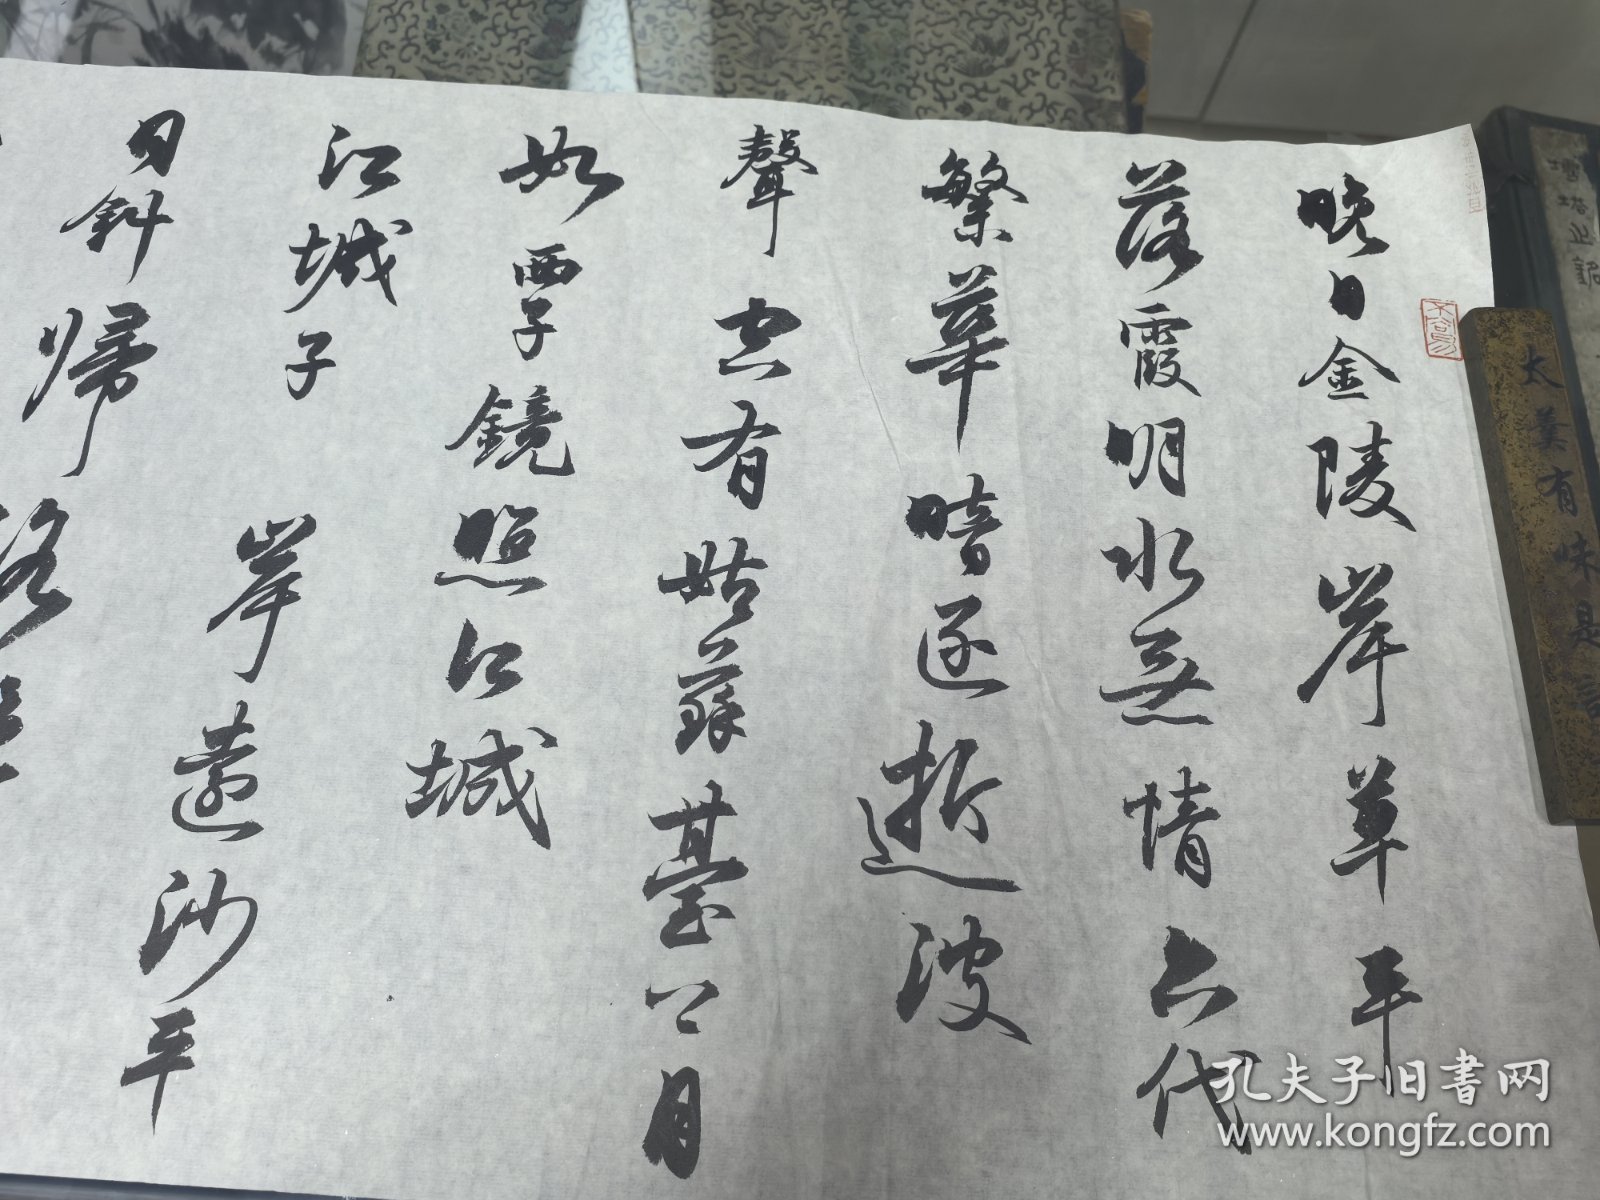 晚日金陵岸草平
落霞明水無情六代
繁華暗逐逝波
聲空有姑蘇臺上月
如西子鏡照江城
江城子
岸遠沙平
日斜歸
太羹有味是
孔夫子旧書网
www.kongfz.com